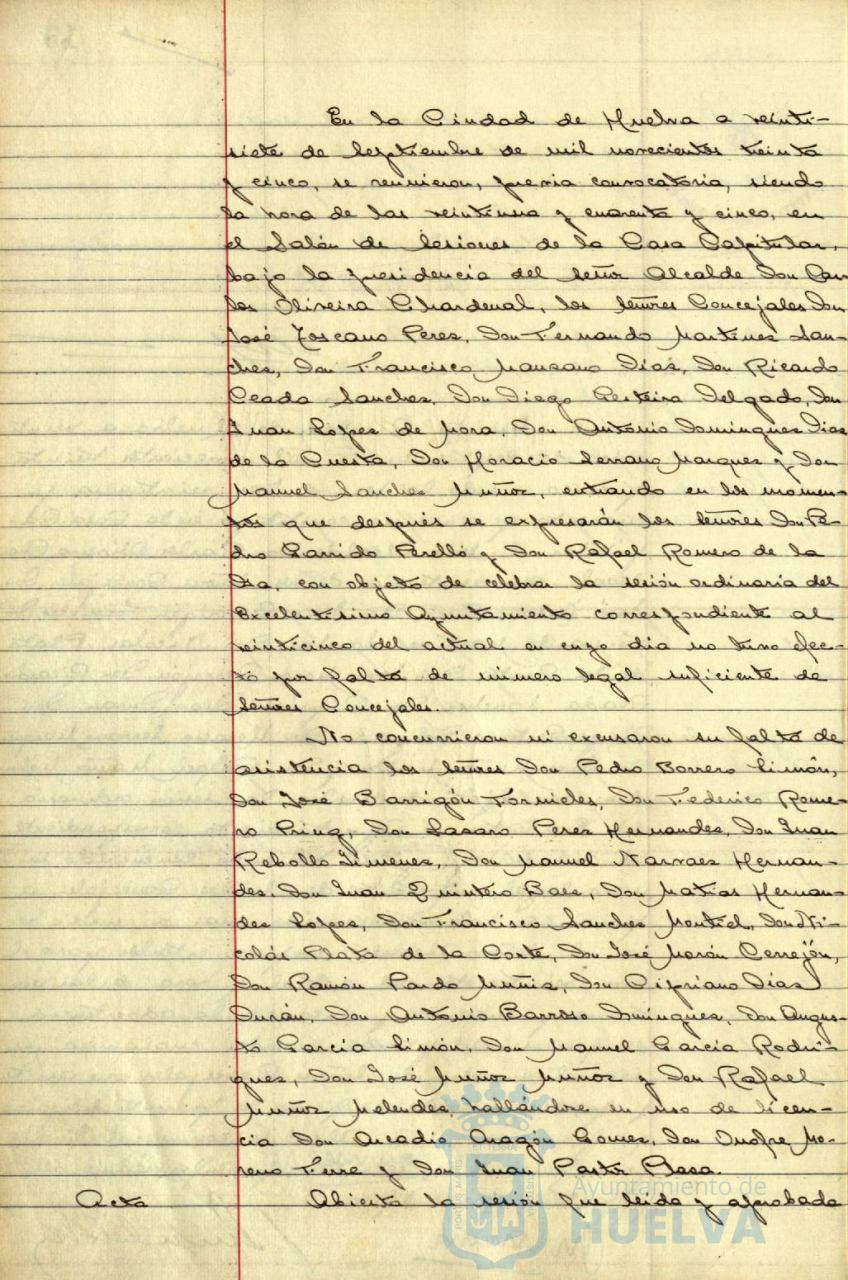 En la Ciudad de Huelva a veinti-
siete de Septiembre de mil novecientos treinta
y cinco, se reunieron, previa convocatoria, siendo
la hora de las veintiuna y cuarenta y cinco, en
el Salón de Sesiones de la Casa Capitular,
bajo la presidencia del señor Alcalde Don Car-
los Oliveira Chardenal, los señores Concejales Don
José Toscano Peres, Don Fernando Martines San-
ches, Don Francisco Mansano Dias, Don Ricardo
Ceada Sanches, Don Diego Desteira Delgado, Don
Juan Lopes de Mora, Don Antonio Domingues Dias
de la Cuesta, Don Horacio Serrano Marques y Don
Manuel Sanches Muñoz, entrando en los momen-
tos que después se expresarán los señores Don Pe-
dro Garrido Perelló y Don Rafael Romero de la
con objeto de celebrar la sesión ordinaria del
Excelentisimo Ayuntamiento correspondiente al
veinticinco del actual en cuyo dia no tuvo efec-
to por falta de número legal suficiente de
señores Concejales.
No concurrieron ni excusaron su falta de
asistencia los señores Don Pedro Borrero Limón,
Don José Barrigón Fornieles, Don Federico Rome-
ro Don Lasaro Peres Hernandes, Don Juan
Rebollo Jimenes, Don Manuel Narvaes Hernan-
des, Don Juan Quintero Baes, Don Matias Hernan-
des Lopes, Don Francisco Sanches Montiel, Don Ni-
colás Plata de la Corte, Don José Morón Cerrejón,
Don Ramón Pardo Muñis, Don Cipriano Dias
Durán, Don Antonio Barroso Domingues, Don Augus-
to Garcia Limón, Don Manuel Garcia Rodri-
gues, Don José Muñoz Muñoz y Don Rafael
Muñoz Melendes, hallándose en uso de licen-
cia Don Arcadio Aragón Gomes, Don Onofre Mo-
reno Ferre y Don Juan Pastor Plasa.
Acta Abierta la sesión fue leida y aprobada
Ayuntamiento de
HUELVA